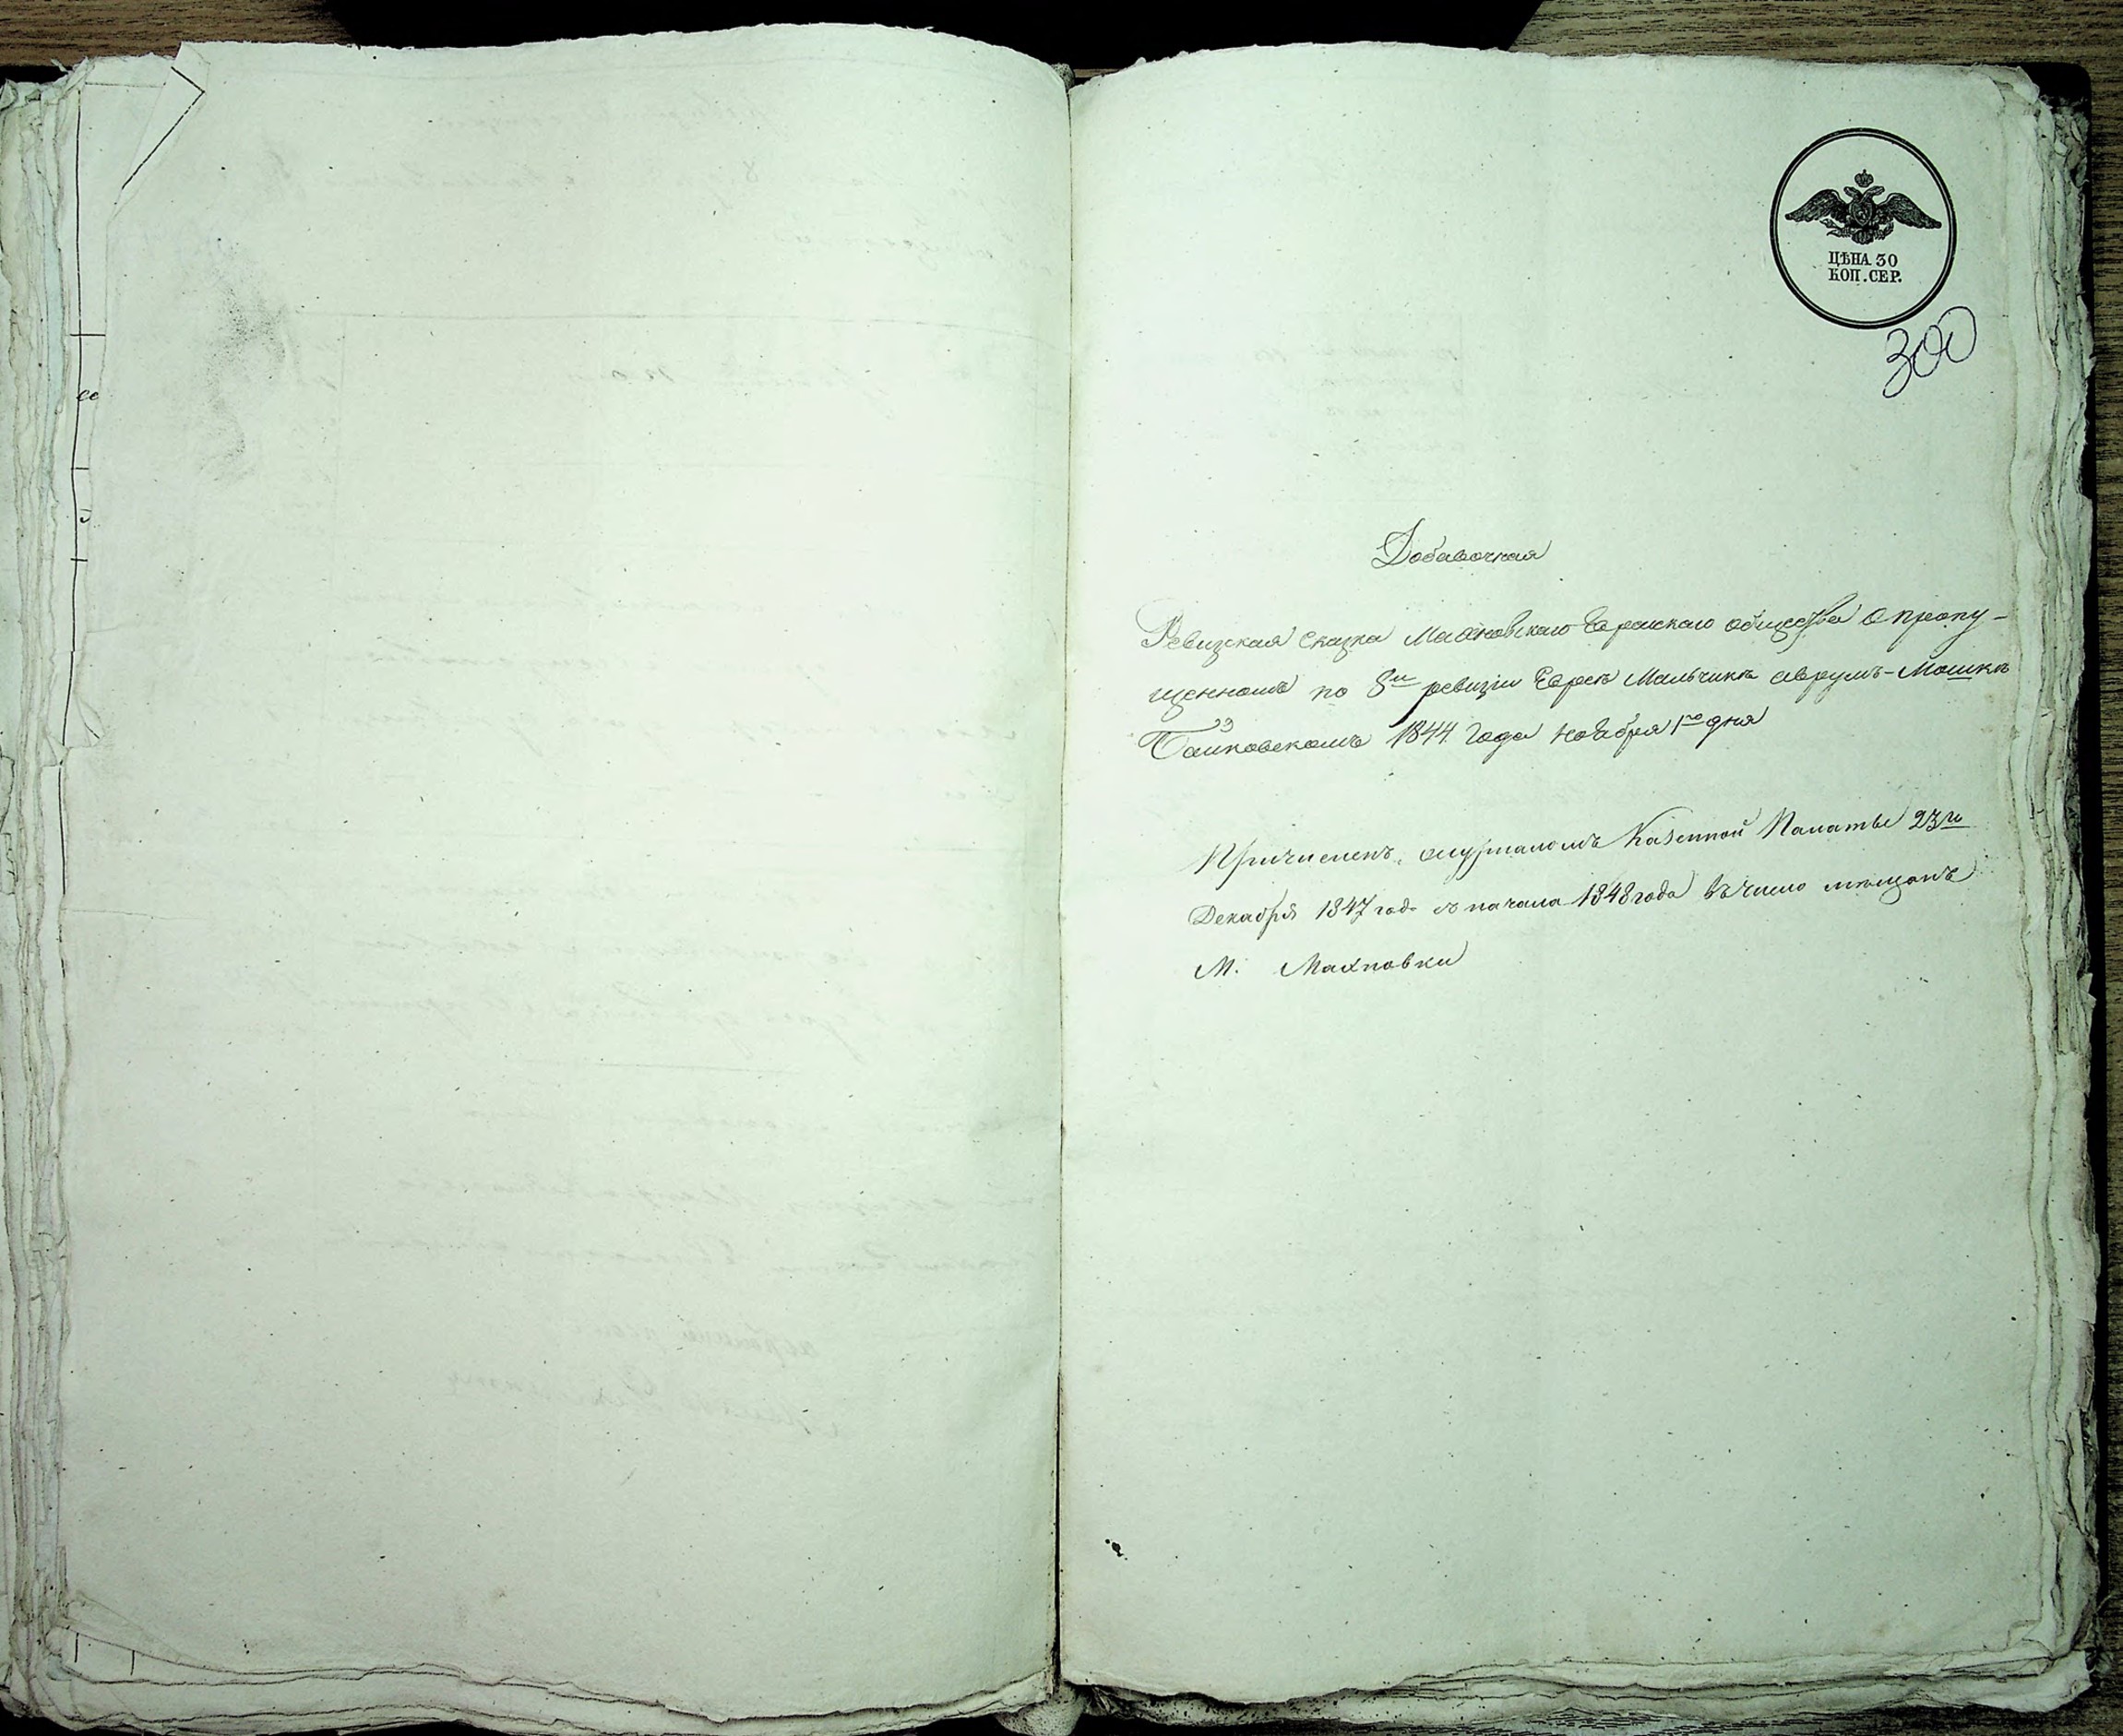 ЦѢНА 30
КОП. СЕР.
300
Добавочная
Ревизская Сказка Махновскаго Еврейскаго общества о пропу-
щенномъ по 8й ревизіи Еврѣѣ Мальчикѣ Аврумъ-Мошкѣ
1844 Года Ноября 1го дня
Причисленъ Казенной Палаты 23го
Декабря 1847 года съ начала 1848 года въ число мѣщанъ
М. Махновки